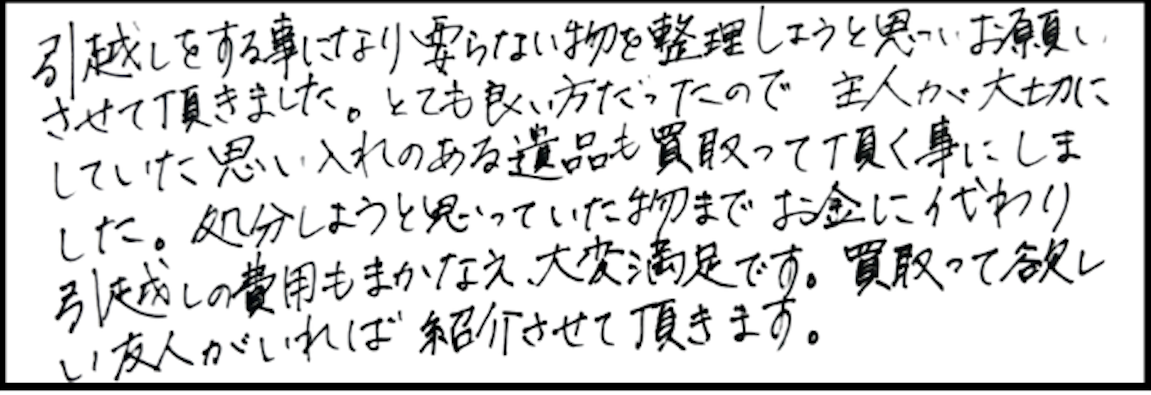 引越しをする事になり要らない物を整理しようと思いお願い
させて頂きました。とても良い方だったので 主人が大切に
していた思い入れのある遺品も買取って頂く事にしま
した。処分しようと思っていた物までお金に代わり
引越しの費用もまかなえ、大変満足です。買取って欲し
い友人がいれば紹介させて頂きます。